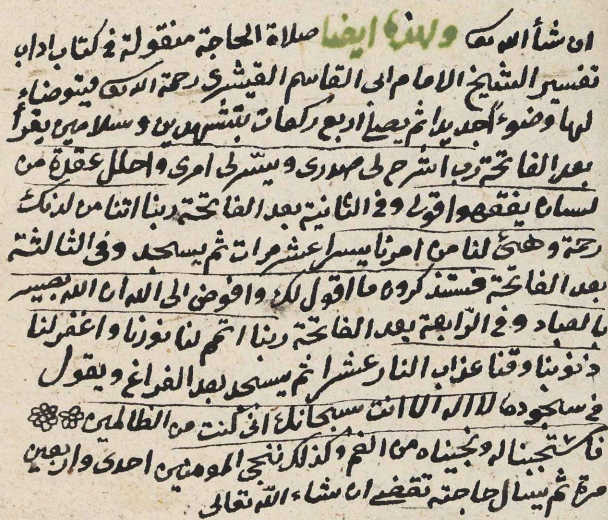 ان شأ الله تعالى وهذه ايضا صلاة الحاجة منقولة فى كتاب اداب
تفسير الشيخ الامام ابى القاسم القيشرى رحمة الله تعالى فيتوضاء
لها وضوءً اجديدا ثم يصلى اربع ركعات بتشهدين وسلامين يقرأ
بعد الفاتحة رب اشرح لى صدرى ويسّر لى امرى واحلل عقدة من
لسانى يفقهوا قولى وفى الثانية بعد الفاتحة ربنا اتنا من لدنك
رحمة وهئ لنا من امرنا يسرا عشر مرات ثم يسجد وفى الثالثة
بعد الفاتحة فستذكرون ما اقول لك وافوض الى الله ان الله بصير
بالعباد وفى الرّابعة بعد الفاتحة ربنا اتمم لنا نورنا واغفر لنا
ذنوبنا وقنا عذاب النار عشرا ثم يسجد بعد الفراغ ويقول
فى سجوده لا اله الا انت سبحانك انى كنت من الظالمين
فاستجبناله ونجيناه من الغم وكذلك ننجى المومنين احدى واربعين
مرة ثم يسال حاجته تقضى ان شاء الله تعالى